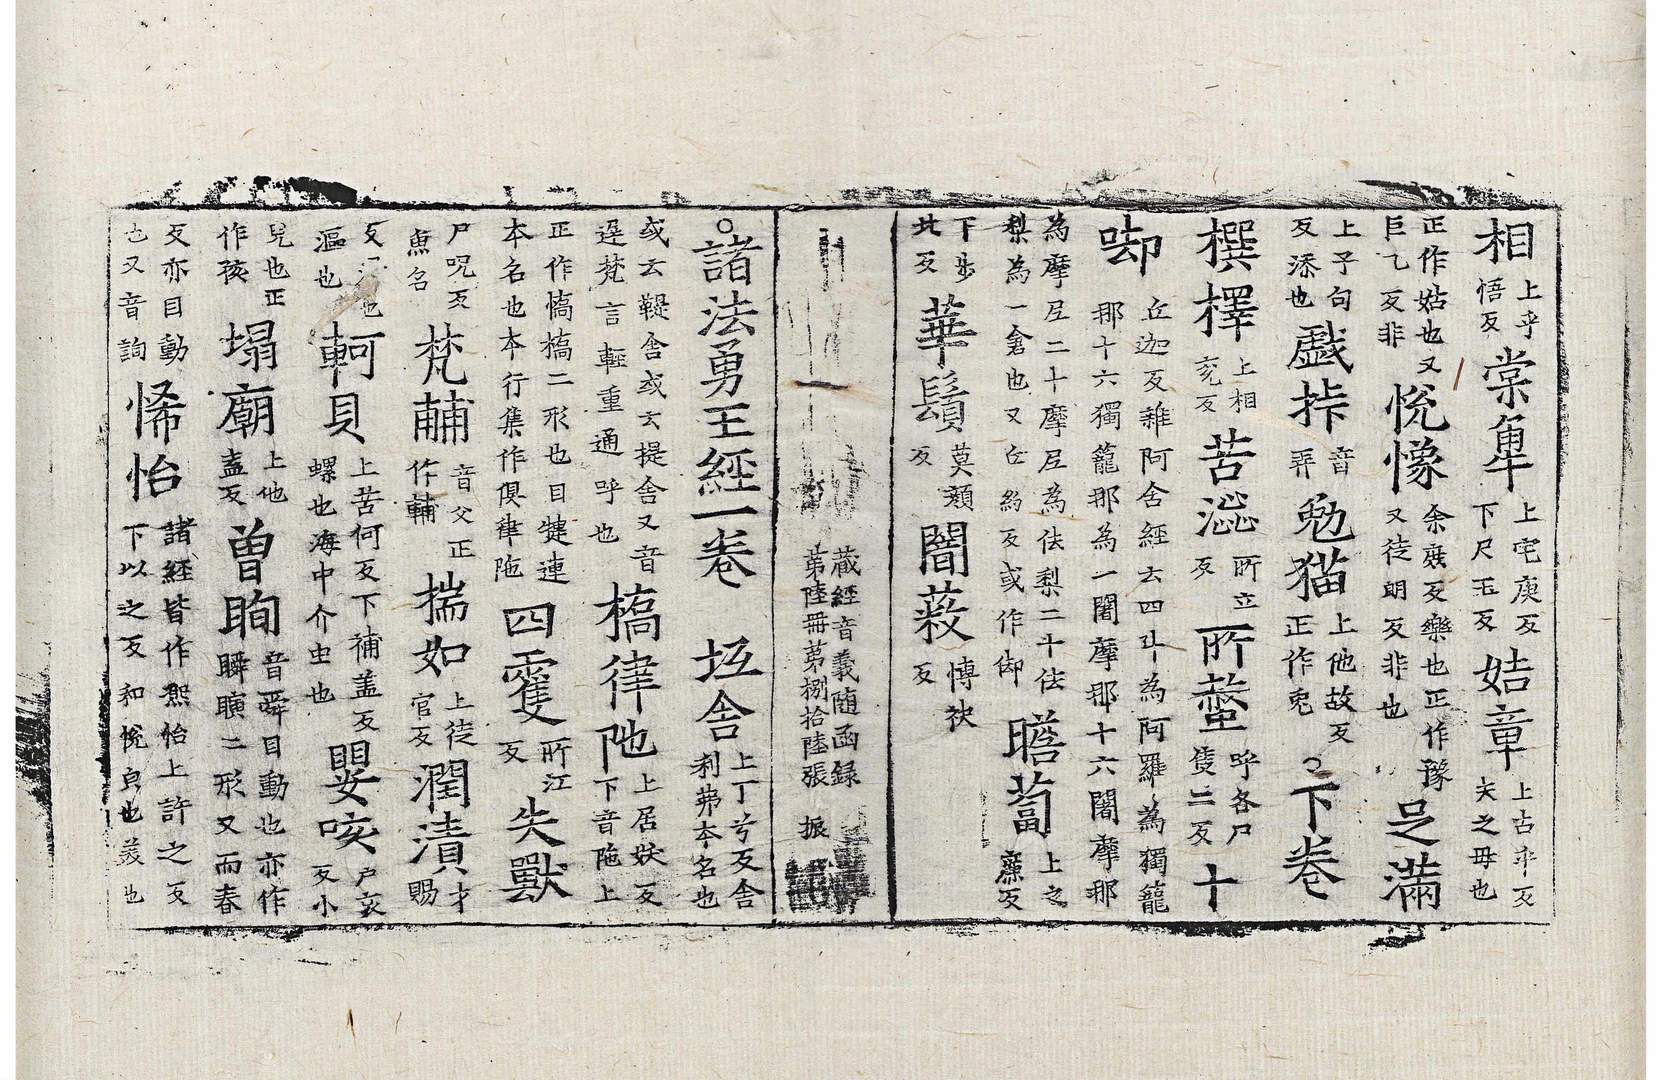 相 上乎悟反 棠 上宅庚反 下尺玉反 姞章 上占乎反 夫之毋也
正作姑也又巨乙反非 悦㦽 余庶反樂也正作豫又徒朗反非也 足滿
上子句反添也 戲挊 音弄 勉猫 上他故反正作兔 ○下卷
撰擇 上相兖反 苦澁 所立反 所蜇 呼各尸隻二反 十
㖡 丘迦反雜阿含經云四斗為阿羅為獨籠那十六獨籠那為一闍摩那十六闍摩那
為摩尼二十摩尼為佉梨二十佉梨為一倉也又丘約反或作御 瞻蔔 上之廉反
下步北反 華鬚 莫顔反 闇蔱 博袂反
一
藏經音義随函録第陸冊苐捌拾陸張 振
○諸法勇王經一卷 坁舍 上丁兮反舍利弗本名也
或云鞮舍或云提舍又音遲梵言輕重通呼也 憍律陁 上居妖反下音陁上
正作憍㤭二形也目犍連本名也本行集作俱律陁 四䨥 所江反 失獸
尸呪反 魚名 梵䩉 音父正作輔 揣如 上徒官反 潤漬 才賜
反 漚也 軻貝 上苦何反下補盖反螺也海中介虫也 嬰咳 户亥反小
兒也正作孩 塌廟 上他盍反 曽眴 音舜目動也亦作瞬瞚二形又而春
反亦目動也又音詢 悕怡 諸經皆作熈怡上許之反下以之反和悅皃也羙也